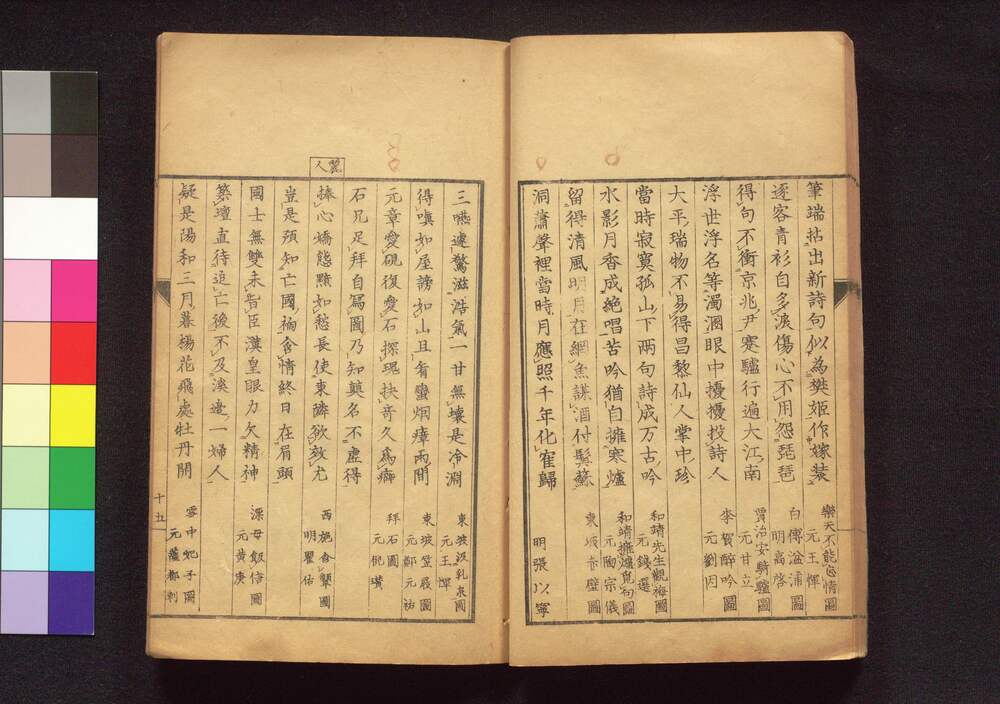 筆端拈出新詩句似為樊姬作嫁装
樂天不能忘情圖
元王惲
逐客青衫自多淚傷心不用怨琵琶
白傅湓浦圖
明高啓
得句不衝京兆尹蹇驢行遍大江南
賈治安騎驢圖
元甘立
浮世浮名等濁溷眼中擾擾投詩人
大平瑞物不易得昌黎仙人掌中珍
李賀醉吟圖
元劉因
當時寂寞孤山下兩句詩成万古吟
和靖先生觀梅圖
元錢選
水影月香成絶唱苦吟猶自擁寒爐
和靖擁爐覓句圖
元陶宗儀
留得清風明月在網魚謀酒付髯蘇
洞蕭聲裡當時月應照千年化寉歸
東坡赤壁圖
明張以寧
三嚥遽驚滋浩氣一甘無壤是冷淵
東坡汲乳泉圖
元王惲
得嗔如屋謗如山且看蠻烟瘴雨間
東坡笠屐圖
元鄭元祐
元章愛硯復愛石探瑰抉奇久為癖
石兄足拜自寫圖乃知名不虛得
拜石圖
元倪瓚
麗人
捧心嬌態黙如愁長使東隣欲效尤
豈是預知亡國禍含情終日在眉頭
西施含顰圖
明瞿佑
國士無雙未臣漢皇眼力欠精神
築壇直待追亡後不及溪邊一婦人
漂母飯信圖
元黄庚
疑是陽和三月暮楊花飛處牡丹開
雪中妃子圖
元薩都剌
十五